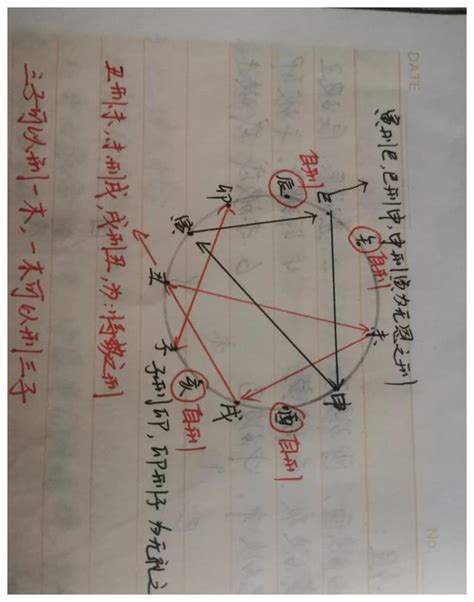 DATE
No.
寅刑巳,巳刑申,申刑寅为无恩之刑
午自刑
未
巳
申
自刑
辰
酉自刑
卯
戌
寅
亥自刑
丑
子
子刑卯,卯刑子 为无礼之
丑刑未,未刑戌,戌刑丑,为:恃势之刑
三子可以刑一木,一木可以刑三子